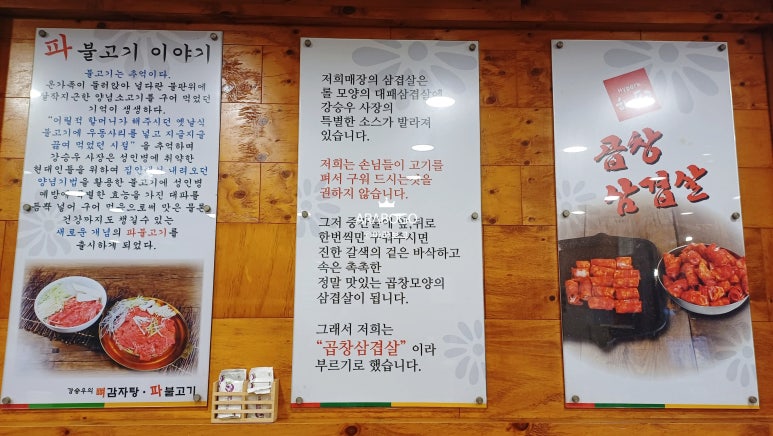 파 불고기 이야기
불고기는 추억이다.
온가족이 둘러앉아 널다란 불판위에
납작지근한 양념소고기를 구어 먹었던
기억이 생생하다.
"어릴적 할머니가 해주시던 옛날식
불고기에 우동사리를 넣고 지글지글
끓여 먹었던 시절" 을 추억하며
강승우 사장은 성인병에 취약한
현대인들을 위하여 내려오던
양념기법을 활용한 불고기에 성인병
예방에 특별한 효능을 가진 대파를
듬뿍 넣어 구어 먹음으로써 맛은 물론
건강까지도 챙길수 있는
새로운 개념의 파불고기를
출시하게 되었다.
강승우의 뼈감자탕 · 파불고기
저희매장의 삼겹살은
롤 모양의 대패삼겹살에
강승우 사장의
특별한 소스가 발라져
있습니다.
저희는 손님들이 고기를
펴서 구워 드시는것을
권하지 않습니다.
그저 중간불에 앞,뒤로
한번씩만 구워주시면
진한 갈색의 겉은 바삭하고
속은 촉촉한
정말 맛있는 곱창모양의
삼겹살이 됩니다.
그래서 저희는
"곱창삼겹살" 이라
부르기로 했습니다.
곱창
삼겹살